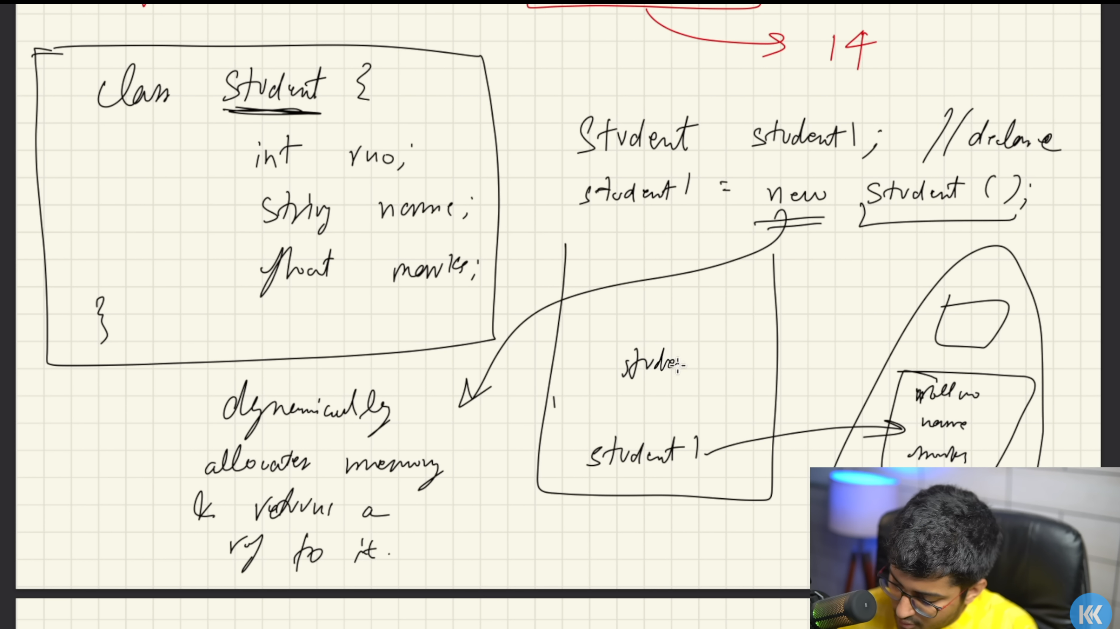 14
class Student {
int rno;
string name;
float marks;
}
Student student1; // declare
student1 = new Student();
dynamically
allocates memory
& returns a
ref to it.
stude
student1
roll no
name
marks
KK